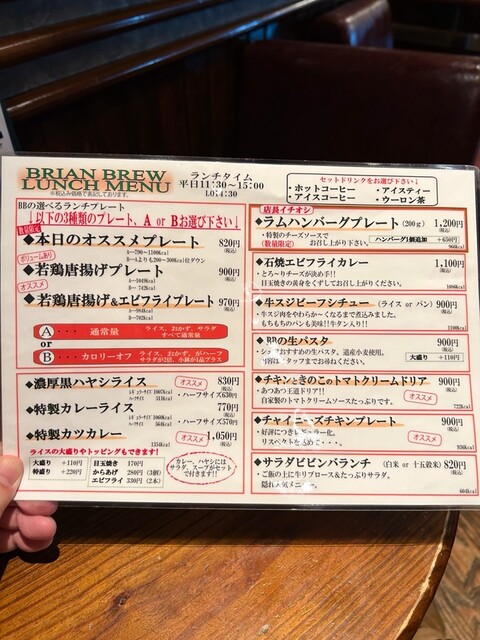 BRIAN BREW
LUNCH MENU
※税込み価格で表記しております。
ランチタイム
平日11:30～15:00
LO14:30
セットドリンクをお選び下さい↓
・ホットコーヒー ・アイスティー
・アイスコーヒー ・ウーロン茶
BBの選べるランチプレート
↓以下の3種類のプレート、A or Bお選び下さい↓
数量限定
◆本日のオススメプレート 820円
(税込)
A…790～1100kcal
B…Aよりも200～300kcal位ダウン
ボリュームあり
◆若鶏唐揚げプレート 900円
(税込)
A…1049kcal
B…742kcal
オススメ
◆若鶏唐揚げ&エビフライプレート 970円
(税込)
A…984kcal
B…702kcal
A・・・ 通常量 ライス、おかず、サラダ
すべて通常量
or
B・・・ カロリーオフ ライス、おかず、がハーフ
サラダが2倍、小鉢が1品プラス
◆濃厚黒ハヤシライス オススメ 830円
・ハーフサイズ630円
◆特製カレーライス 770円
・ハーフサイズ570円
◆特製カツカレー オススメ 1,050円
(税込)
1354kcal
ライスの大盛りやトッピングもできます!
大盛り +110円
特盛り +220円
目玉焼き 170円
からあげ 280円(3個)
エビフライ 330円(2本)
カレー、ハヤシには
サラダ、スープがセット
で付きます!!
店長イチオシ
◆ラムハンバーグプレート (200g) 1,200円
(税込)
・特製のチーズソースで
(数量限定) お召し上がり下さい。
ハンバーグ1個追加 +650円
966kcal
◆石焼エビフライカレー 1,100円
(税込)
・とろ～りチーズが決め手!!
目玉焼きの黄身をくずしてお召し上がりください。
1086kcal
◆牛スジビーフシチュー (ライス or パン) 900円
(税込)
・牛スジ肉をやわらかくなるまで煮込みました。
もちもちのパンも美味!!牛タン入り!!
1100kcal
◆BBの生パスタ 900円
(税込)
おすすめの生パスタ、道産小麦使用。
タッフまでお尋ねください。
大盛り +110円
◆チキンときのこのトマトクリームドリア 900円
(税込)
・あつあつ王道ドリア!!
自家製のトマトクリームソースたっぷりです。
オススメ
722kcal
◆チャイニーズチキンプレート 900円
(税込)
・好評につきレギュラー化。
リスペクトを込めて・・・。
オススメ
936kcal
◆サラダビビンバランチ (白米 or 十五穀米) 820円
(税込)
・ご飯の上に牛リブロース&たっぷりサラダ。
隠れ人気メニュー。
604kcal